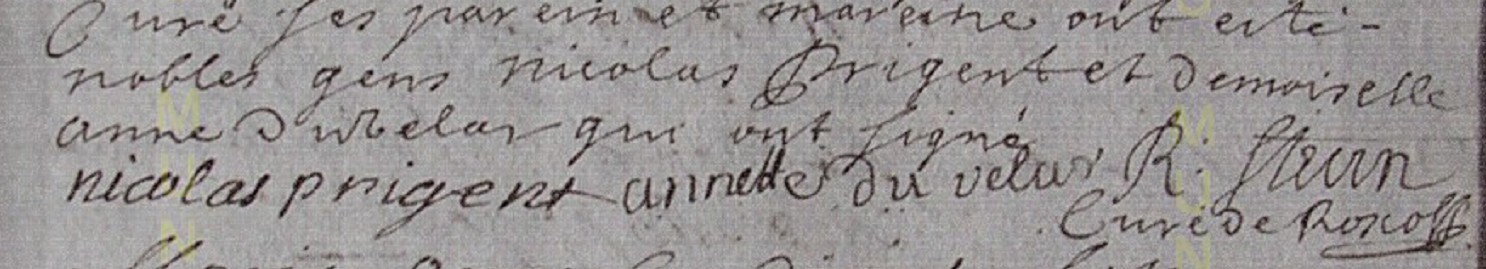 Curé ses parein et mareine ont esté -
nobles gens nicolas Prigent et Demoiselle
anne Duvelar qui ont signé
nicolas prigent annette du velar R:
Curé de Roscoff